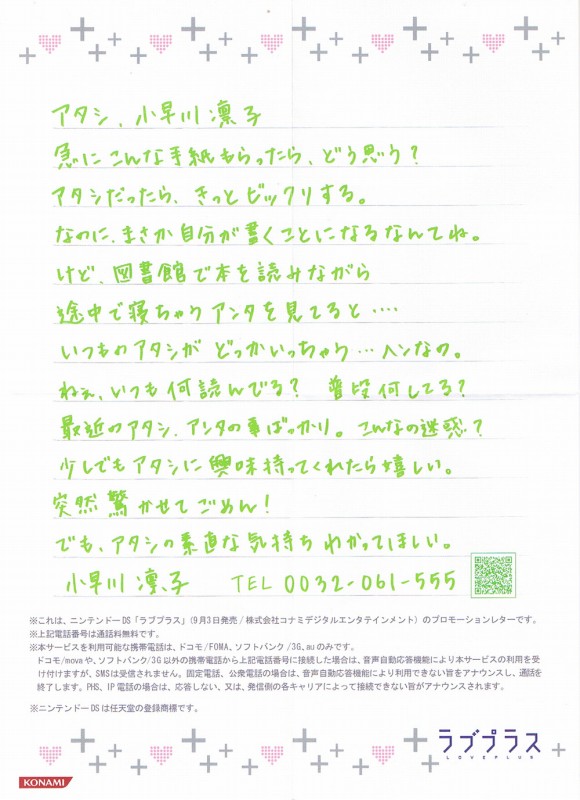 アタシ、小早川凛子
急にこんな手紙もらったら、どう思う？
アタシだったら、きっとビックリする。
なのに、まさか自分が書くことになるなんてね。
けど、図書館で本を読みながら
途中で寝ちゃうアンタを見てると‥‥
いつものアタシが どっかいっちゃう…ヘンなの。
ねぇ、いつも何読んでる？ 普段何してる？
最近のアタシ、アンタの事ばっかり。こんなの迷惑？
少しでもアタシに興味持ってくれたら嬉しい。
突然驚かせてごめん！
でも、アタシの素直な気持ちわかってほしい。
小早川凛子 TEL 0032-061-555
※これは、ニンテンドーDS「ラブプラス」(9月3日発売/株式会社コナミデジタルエンタテインメント)のプロモーションレターです。
※上記電話番号は通話料無料です。
※本サービスを利用可能な携帯電話は、ドコモ/FOMA、ソフトバンク/3G、auのみです。
ドコモ/movaや、ソフトバンク/3G以外の携帯電話から上記電話番号に接続した場合は、音声自動応答機能により本サービスの利用を受
け付けますが、SMSは受信されません。固定電話、公衆電話の場合は、音声自動応答機能により利用できない旨をアナウンスし、通話を
終了します。PHS、IP電話の場合は、応答しない、又は、発信側の各キャリアによって接続できない旨がアナウンスされます。
※ニンテンドーDSは任天堂の登録商標です。
ラブプラス
LOVEPLUS
KONAMI